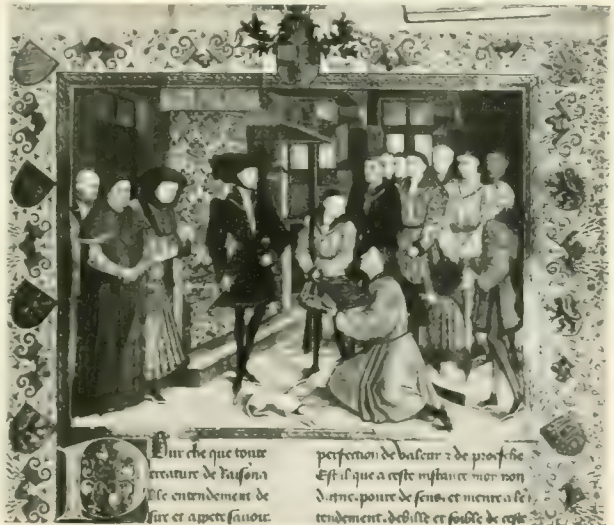 Pour che que toute
creature de Raisona
ble entendement de
sire et appete savoir
perfection de valeur et de proesche
Est il que a ceste instance moy non
digne, povre de sens, et mentre a le
tendement, debille et foible de coste